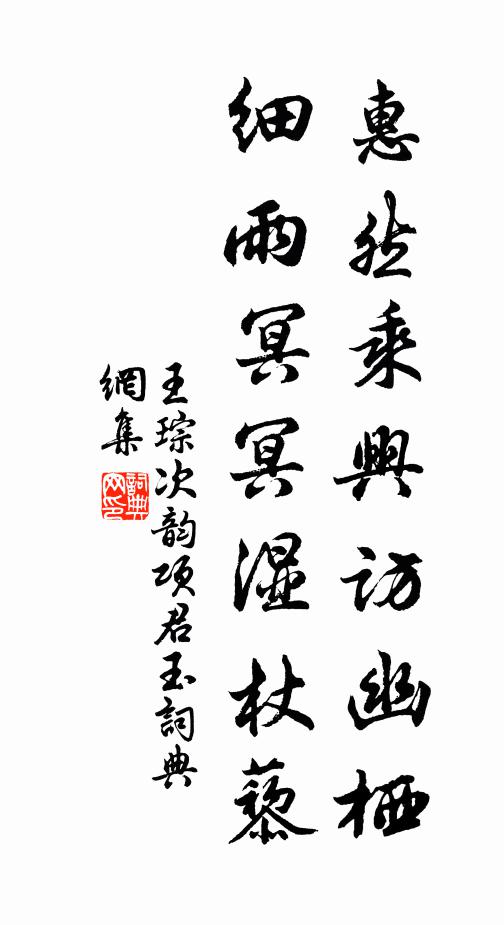 惠然乘興訪幽栖
細雨冥冥濕杖藜
王琮次韵項君玉詞典
網集
詞典網印